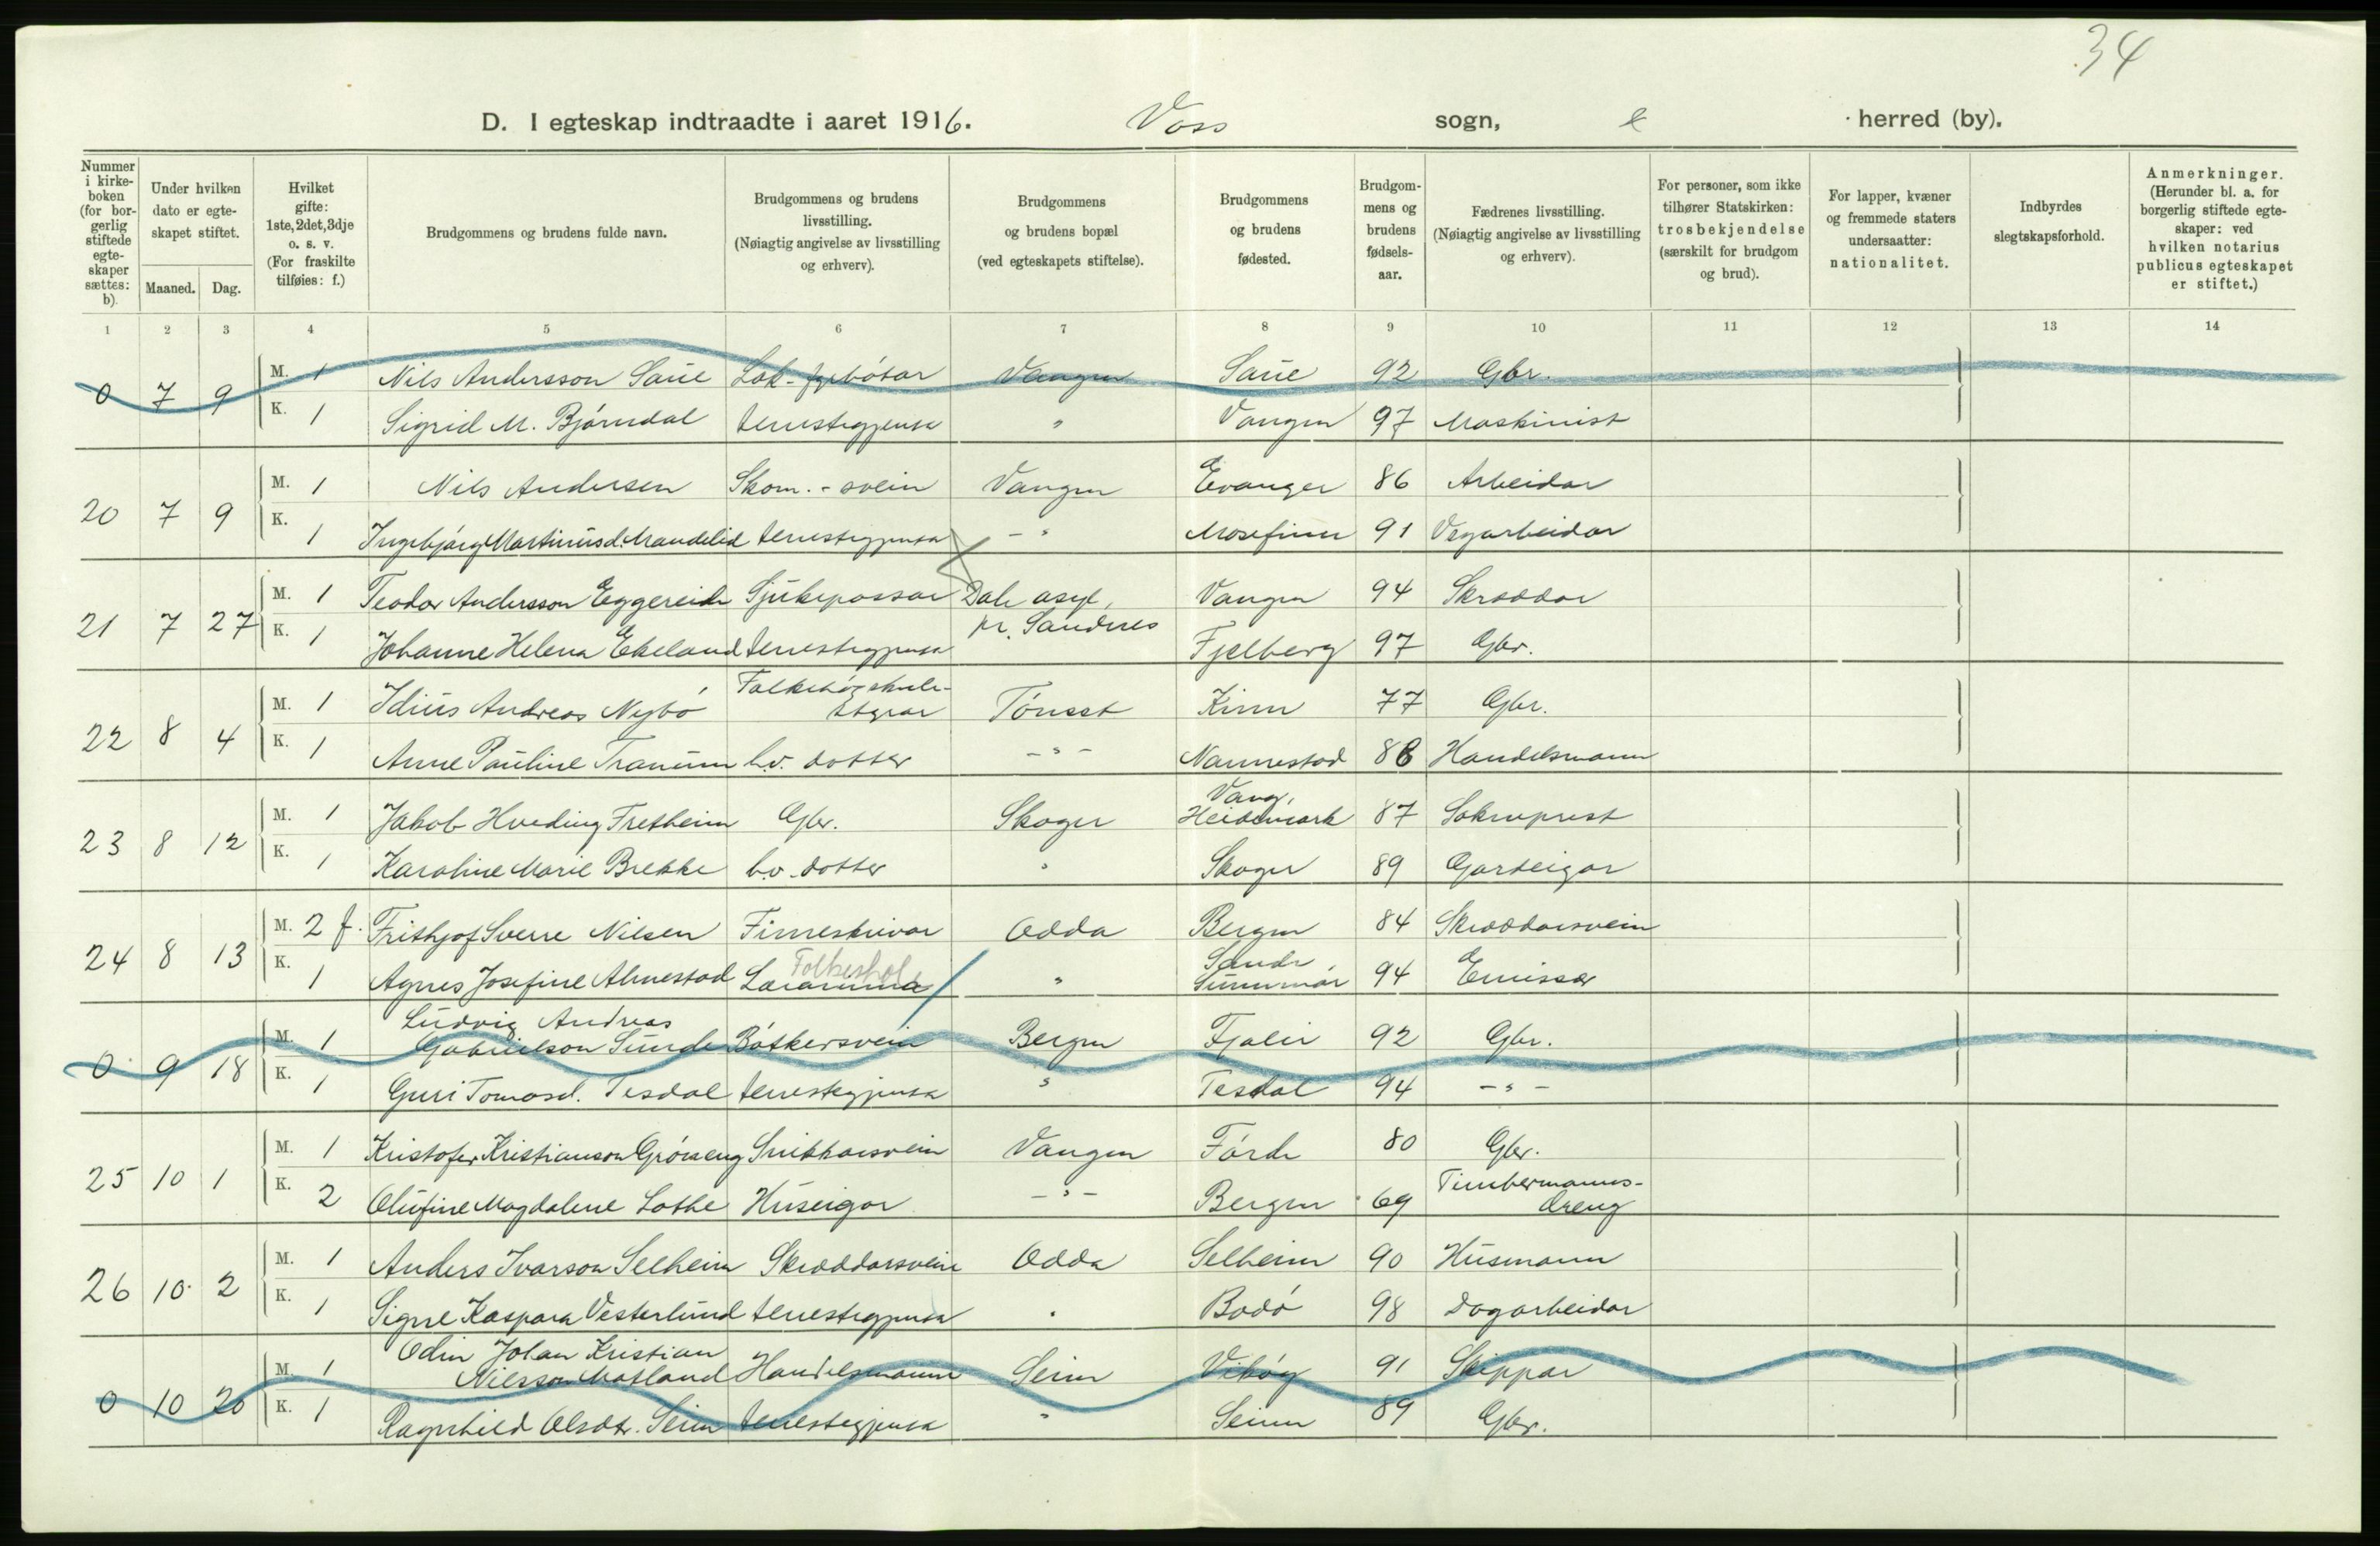 34
D. I egteskap indtraadte i aaret 1916. Voss sogn, herred (by).
Nummer i kirkeboken (for borgerlig stiftede egteskaper sættes: b).
Under hvilken dato er egteskapet stiftet.
Maaned. Dag.
Hvilket gifte: 1ste, 2det, 3dje o. s. v. (For fraskilte tilføies: f.)
Brudgommens og brudens fulde navn.
Brudgommens og brudens livsstilling. (Nøiagtig angivelse av livsstilling og erhverv).
Brudgommens og brudens bopæl (ved egteskapets stiftelse).
Brudgommens og brudens fødested.
Brudgommens og brudens fødselsaar.
Fædrenes livsstilling. (Nøiagtig angivelse av livsstilling og erhverv).
For personer, som ikke tilhører Statskirken: trosbekjendelse (særskilt for brudgom og brud).
For lapper, kvæner og fremmede staters undersaatter: nationalitet.
Indbyrdes slegtskapsforhold.
Anmerkninger. (Herunder bl. a. for borgerlig stiftede egteskaper: ved hvilken notarius publicus egteskapet er stiftet.)
1 2 3 4 5 6 7 8 9 10 11 12 13 14
0 7 9 M. 1 Nils Andersson Saue Vangen Saue 92 Gbr.
K. 1 Sigrid M. Bjørndal tenestegjenta " Vangen 97 Maskinist
20 7 9 M. 1 Nils Andersen Skom.-svein Vangen Evanger 86 Arbeidar
K. 1 Ingebjørg Martinusd. Mandelid tenestegjenta - " Mosefinn 91 Vegarbeidar
21 7 27 M. 1 Teodor Andersson Eggereide Sjukepassar Dale asyl, Vangen 94 Skræddar
pr. Sandnes
K. 1 Johanne Helena Ekeland tenestegjenta Fjelberg 97 Gbr.
22 8 4 M. 1 Idius Andreas Nybø Folkehøgskule-
styrar Tønset Kinn 77 Gbr.
K. 1 Anne Pauline Tranum h.v. dotter - " - Nannestad 86 Handelsmann
23 8 12 M. 1 Jakob Hveding Fretheim Gbr. Skoger Vang, Heidemark 87 Sokneprest
K. 1 Karoline Marie Brekke h.v. dotter " Skoger 89 Gardeigar
24 8 13 M. 2 f. Frithjof Sverre Nilsen Finneskrivar Odda Bergen 84 Skræddarsvein
K. 1 Agnes Josefine Almestad Folkeskol Lærarinna " Sande, Sunnmør 94 Emissær
0 9 18 M. 1 Ludvig Andreas
Gabrielson Sunde Bøtkersvein Bergen Fjaler 92 Gbr.
K. 1 Guri Tomasd. Tesdal tenestegjenta " Tesdal 94 - " -
25 10 1 M. 1 Kristofer Kristianson Grøneng Snikkarsvein Vangen Førde 80 Gbr.
K. 2 Olufine Magdalene Lothe Huseigar - " - Bergen 69 Timbermanns-
dreng
26 10 2 M. 1 Anders Ivarson Selheim Skræddarsvein Odda Selheim 90 Husmann
K. 1 Signe Kaspara Vesterlund tenestegjenta " Bodø 98 Dagarbeidar
0 10 20 M. 1 Odin Johan Kristian
Nilsson Matland Handelsmann Seim 91 Skippar
K. 1 Ragnhild Olsdtr. Seim tenestegjenta " Seim 89 Gbr.